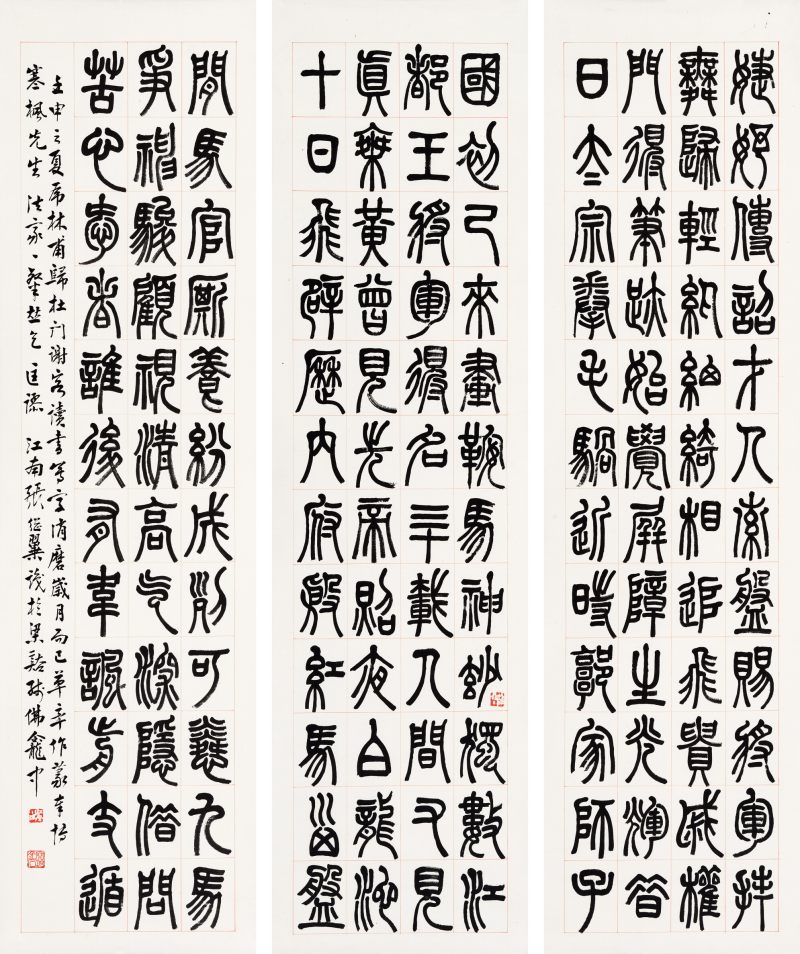 婕妤傳詔才人索盤賜將軍拜
舞歸輕紈紬綺相追飛貴戚權
門得筆跡始覺屏障生光輝昔
日太宗拳毛騧近時郭家師子
國初已來畫鞍馬神妙獨數江
都王將軍得名三載人間又見
真乘黃曾皃先帝照夜白龍池
十日飛辟歷內府殷紅馬𡿺盤
間馬官廝養紛成列可憐九馬
爭神駿顧視清高氣深隱借問
苦心愛者誰後有韋諷前支遁
壬申之夏 林甫歸杜门谢客读书写字消磨歲月而已草率作篆奉博
寒楓先生法家一粲並乞匡謬 江南張繼翼識於梁谿 佛龕中